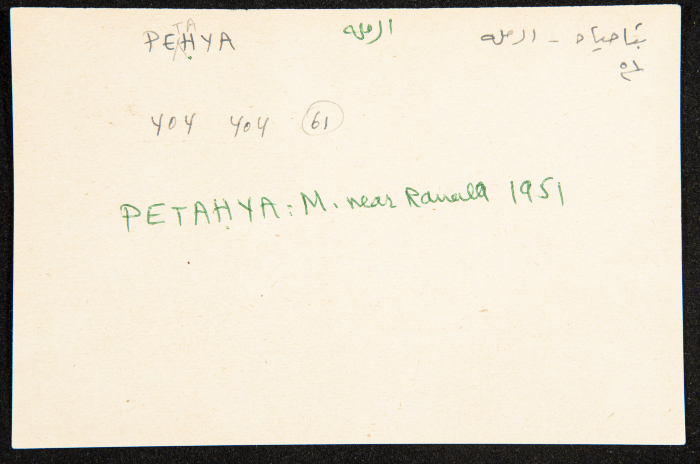 PETAHYA الرمله بتاحياه - الرمله
404 404 61
PETAHYA: M. near Ramla 1951